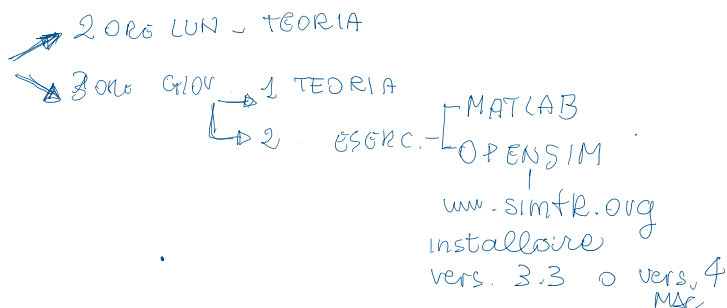 2 ORE LUN - TEORIA
3 ORE GIOV. 1 TEORIA
2 ESERC. - MATLAB
OPENSIM
www.simtk.org
installare
vers. 3.3 o vers. 4
MAC